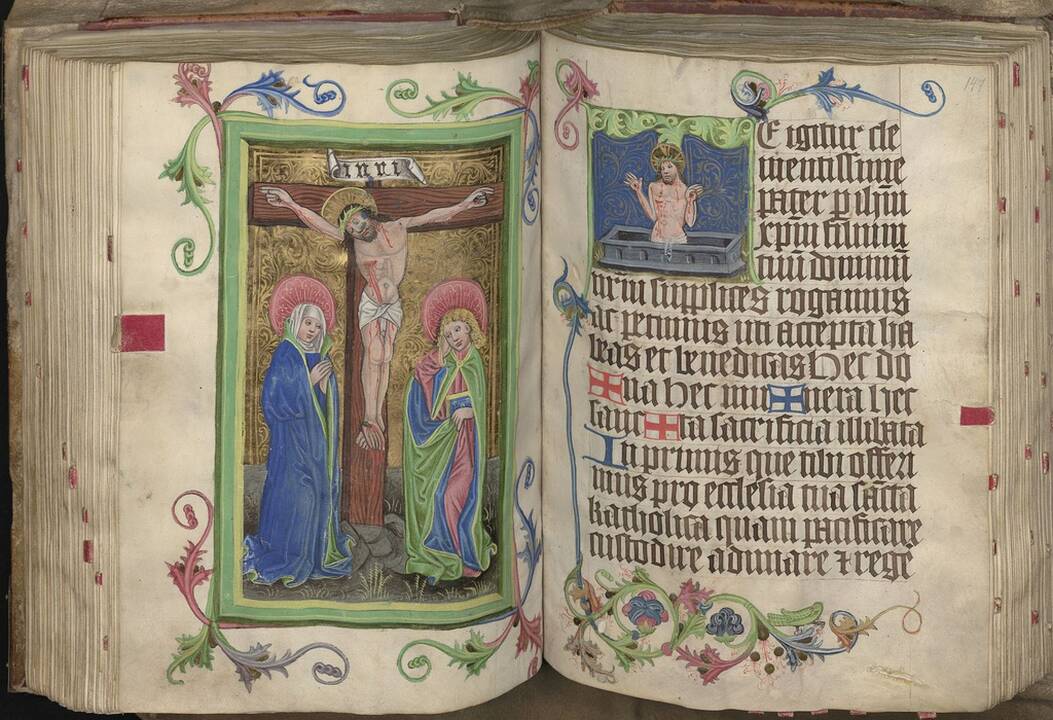 inri
E igitur cle
mentissime
pater p ihm
xpm filium
tuu dominu
nrm supplices rogamus
ac petimus uti accepta ha
beas et benedicas Hec do
✠ na hec mu ✠ nera hec
sanc ✠ ta sacrificia illibata
In primis que tibi offeri
mus pro ecclesia tua sancta
katholica quam pacificare
custodire adunare ⁊ rege